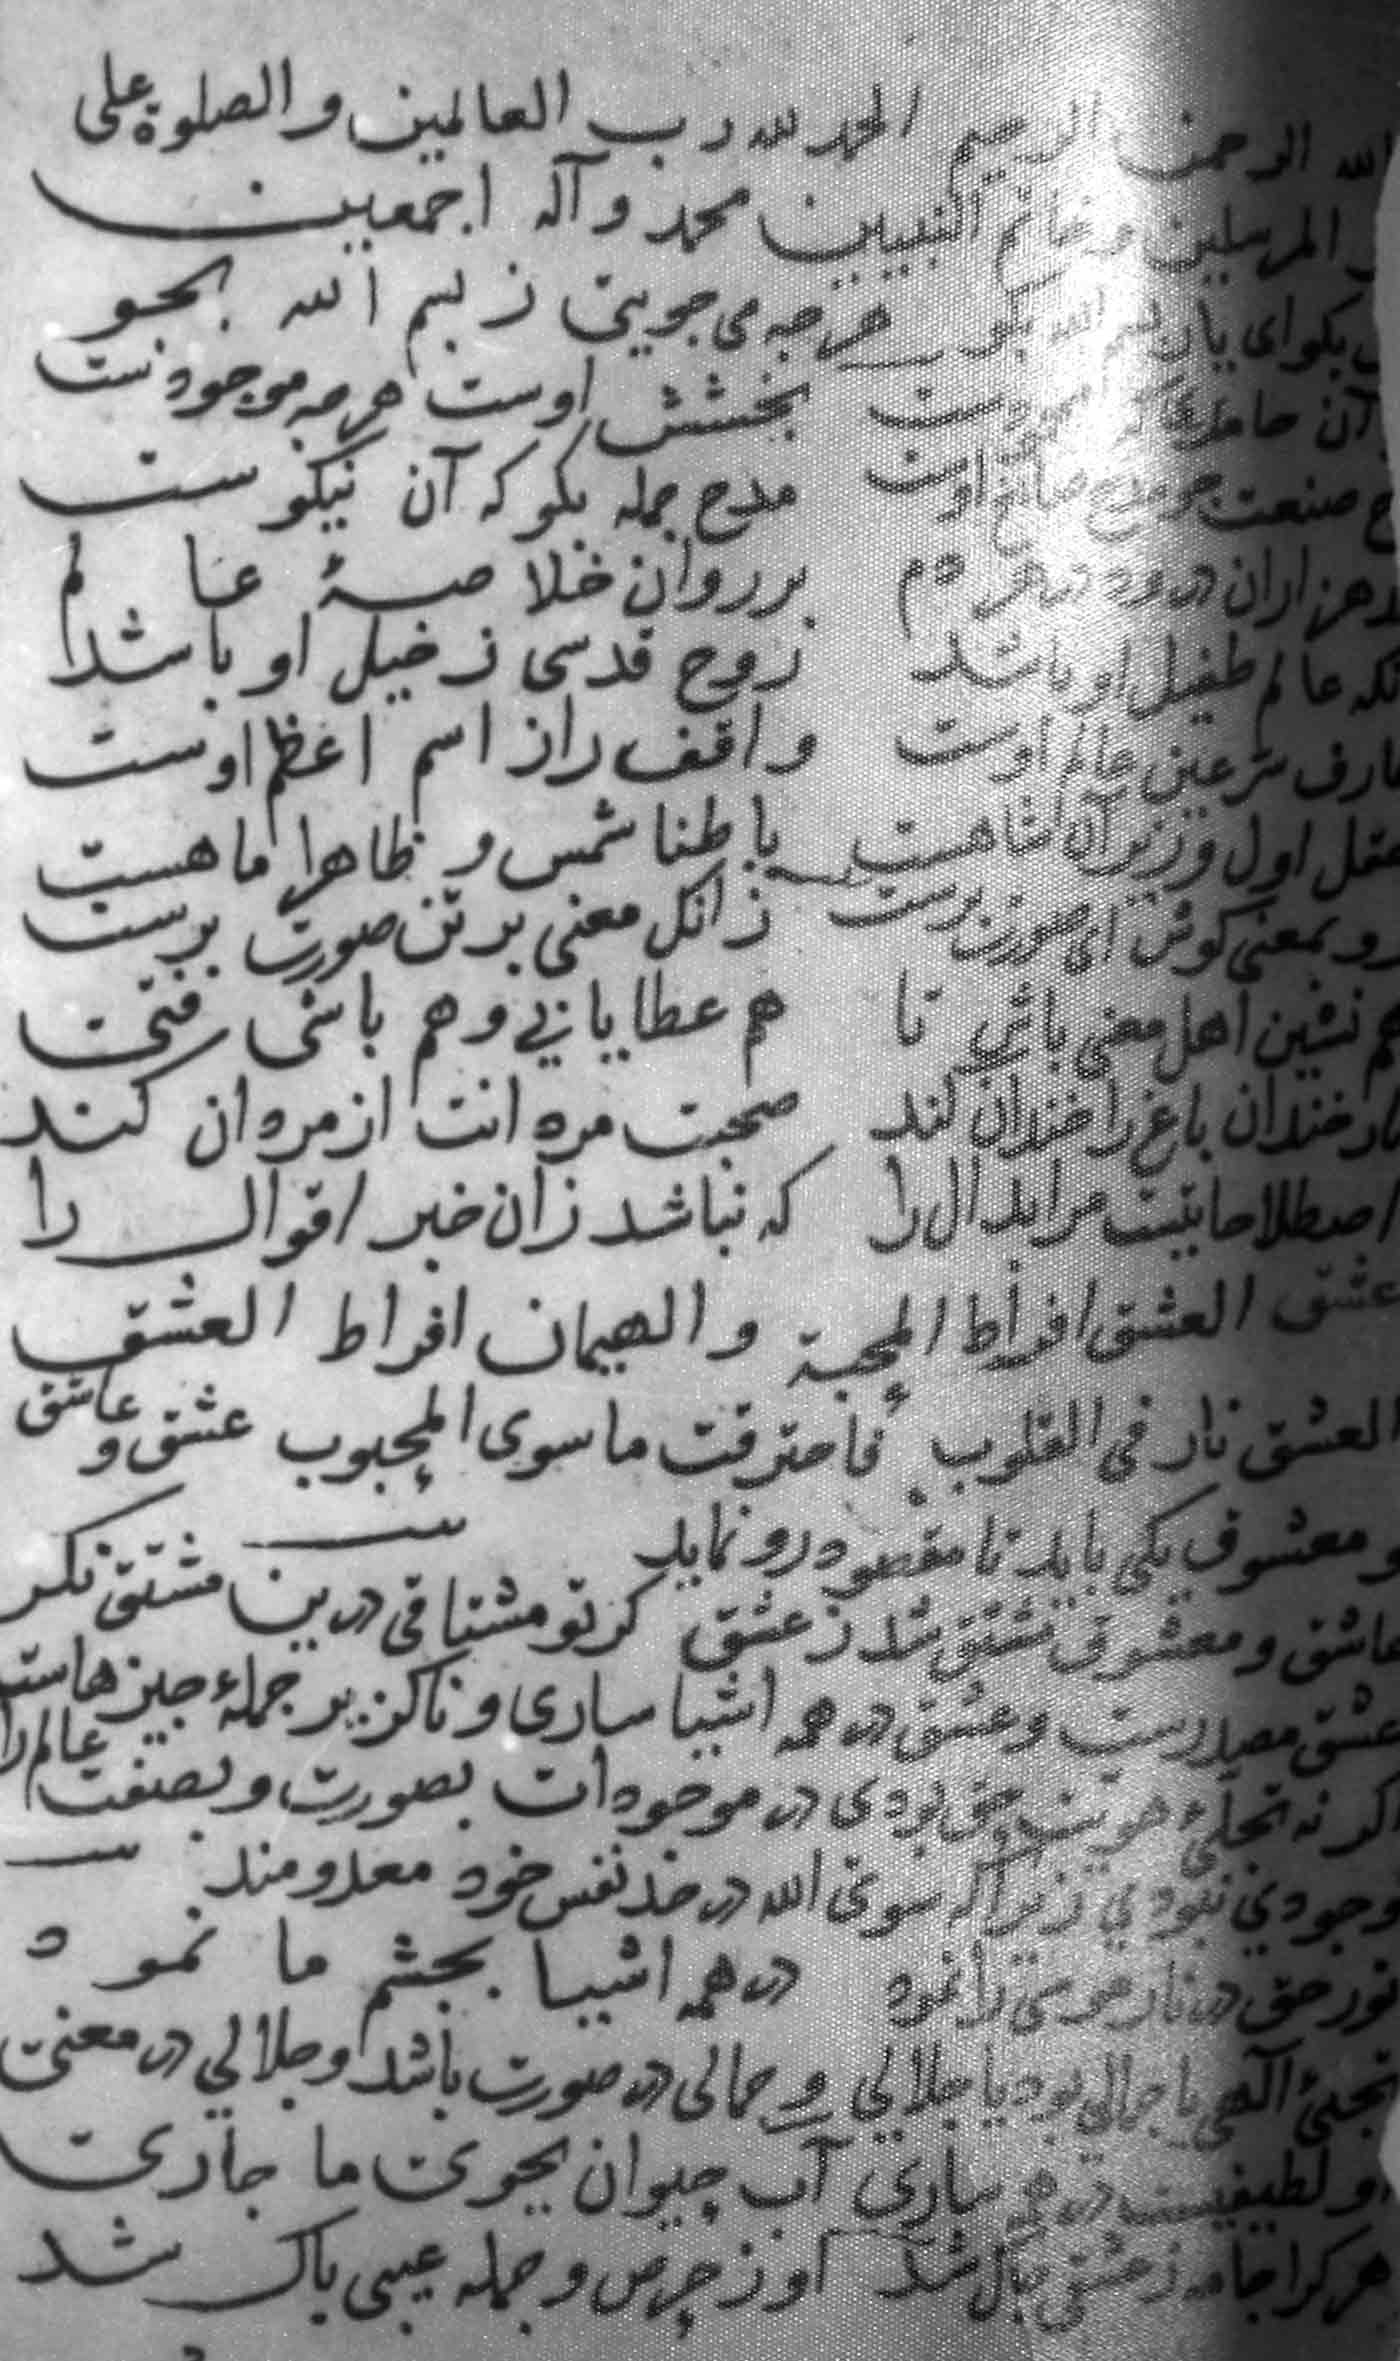 الله الرحمن الرحيم الحمد لله رب العالمين والصلوة على
المرسلين و خاتم النبيين محمد وآله اجمعين
بكو اى يار بسم الله بكو هرجه مى جويى ز بسم الله بجو
آن حامدى كه بخشش اوست هرجه موجودست
صنعت جو مدح صانع اوست مدح جمله بكو كه آن نيكوست
هزاران درود هر دم بر روان خلاصۀ عالم
عالم طفيل او باشد روح قدسى ز خيل او باشد
عارف سر عين عالم اوست واقف راز اسم اعظم اوست
عقل اول وزير آن شاهست باطنا شمس و ظاهرا ماهست
رو بمعنى كوش اى صورت برست زانك معنى بر تن صورت برست
هم نشين اهل معنى باش تا هم عطا يابي و هم باشى فتى
نار خندان باغ را خندان كند صحبت مردانت از مردان كند
اصطلاحاتيست مر ابدال را كه نباشد زان خبر اقوال را
عشق العشق افراط المحبة والهيمان افراط العشق
العشق نار فى القلوب فاحترقت ماسوى المحبوب عشق و عاشق
و معشوق يكى بايد تا مقصود رو نمايد
عاشق و معشوق مشتق شد ز عشق كر تو مشتاقى درين مشتق نكر
عشق مصدرست و عشق در همه اشيا سارى و ناكزير جملۀ جيزهاست
كر نه تجلئ هويت حق بودى در موجودات بصورت و بصفت عالم را
وجودي نبودي زيرا كه سوى الله در حد نفس خود معدومند
نور حق در نار موسى را نمود در همه اشيا بجشم ما نمود
تجلئ الهى يا جمالى بود يا جلالي و جمالى در صورت باشد و جلالي در معنى
او لطيفيست در همه سارى آب حيوان بجوى ما جارى
هركرا جامه ز عشقى جاك شد او ز حرص و جمله عيبى باك شد